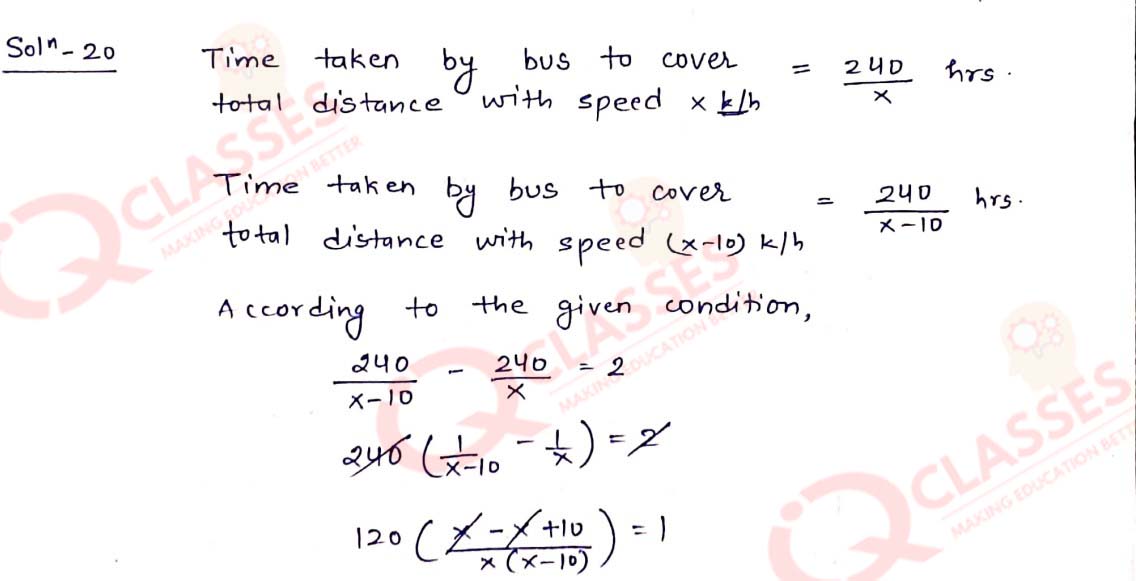 Solⁿ - 20
Time taken by bus to cover
total distance with speed x k/h = 240/x hrs.
Time taken by bus to cover
total distance with speed (x-10) k/h = 240/(x-10) hrs.
According to the given condition,
240/(x-10) - 240/x = 2
240 (1/(x-10) - 1/x) = 2
120 ((x - x + 10)/(x(x-10))) = 1
IQ CLASSES
MAKING EDUCATION BETTER
IQ CLASSES
MAKING EDUCATION BETTER
IQ CLASSES
MAKING EDUCATION BETT